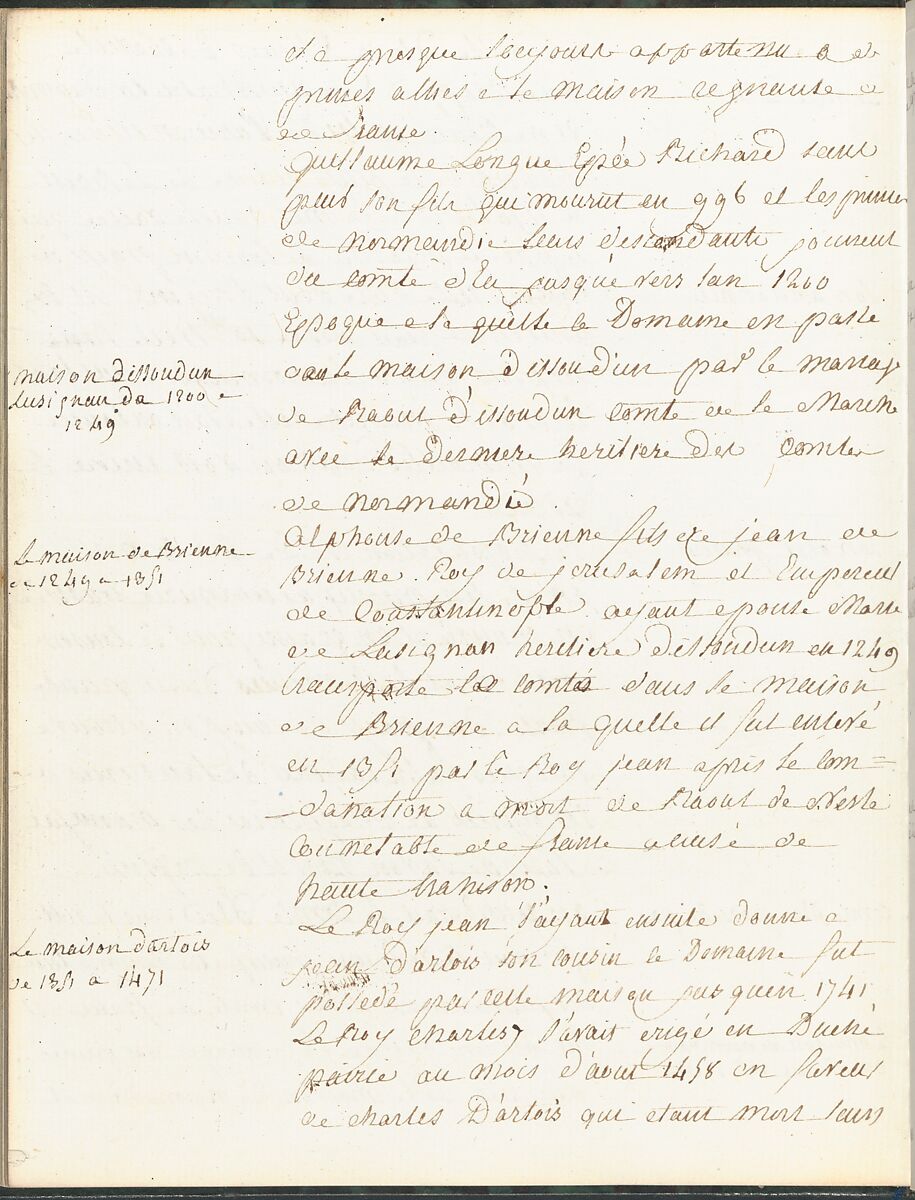 et a presque toujours appartenu a de
princes allies a la maison regnante
de france
Guillaume Longue Epée Richard sans
peur son fils qui mourut en 996 et les princes
de normandie leurs descendants jouirent
du comté d'Eu jusque vers l'an 1200
Epoque a la quelle ce Domaine en passé
dans la maison d'issoudun par le mariage
maison dissoudun
Lusignan de 1200 a
1249
de Raoul d'issoudun comte de la Marche
avec la derniere heritiere des comtes
de normandie
alphonse de Brienne fils de jean de
La maison de Brienne
de 1249 a 1351
Brienne Roy de jerusalem et Empereur
de Constantinople ayant epousé Marie
de Lusignan heritiere d'issoudun en 1249
transporte le comté dans la maison
de Brienne a la quelle il fut enlevé
en 1351 par le Roy jean apres la con=
danation a mort de Raoul de Nesle
Connetable de france acusé de
haute trahison.
Le Roy jean l'ayant ensuite donné a
La maison d'artois
de 1351 a 1471
jean d'artois son cousin ce Domaine fut
possedé par cette maison jusqu'en 1741
Le Roy charles 7 l'avait erigé en Duché
pairie au mois d'aout 1458 en faveur
de charles D'artois qui etant mort sans